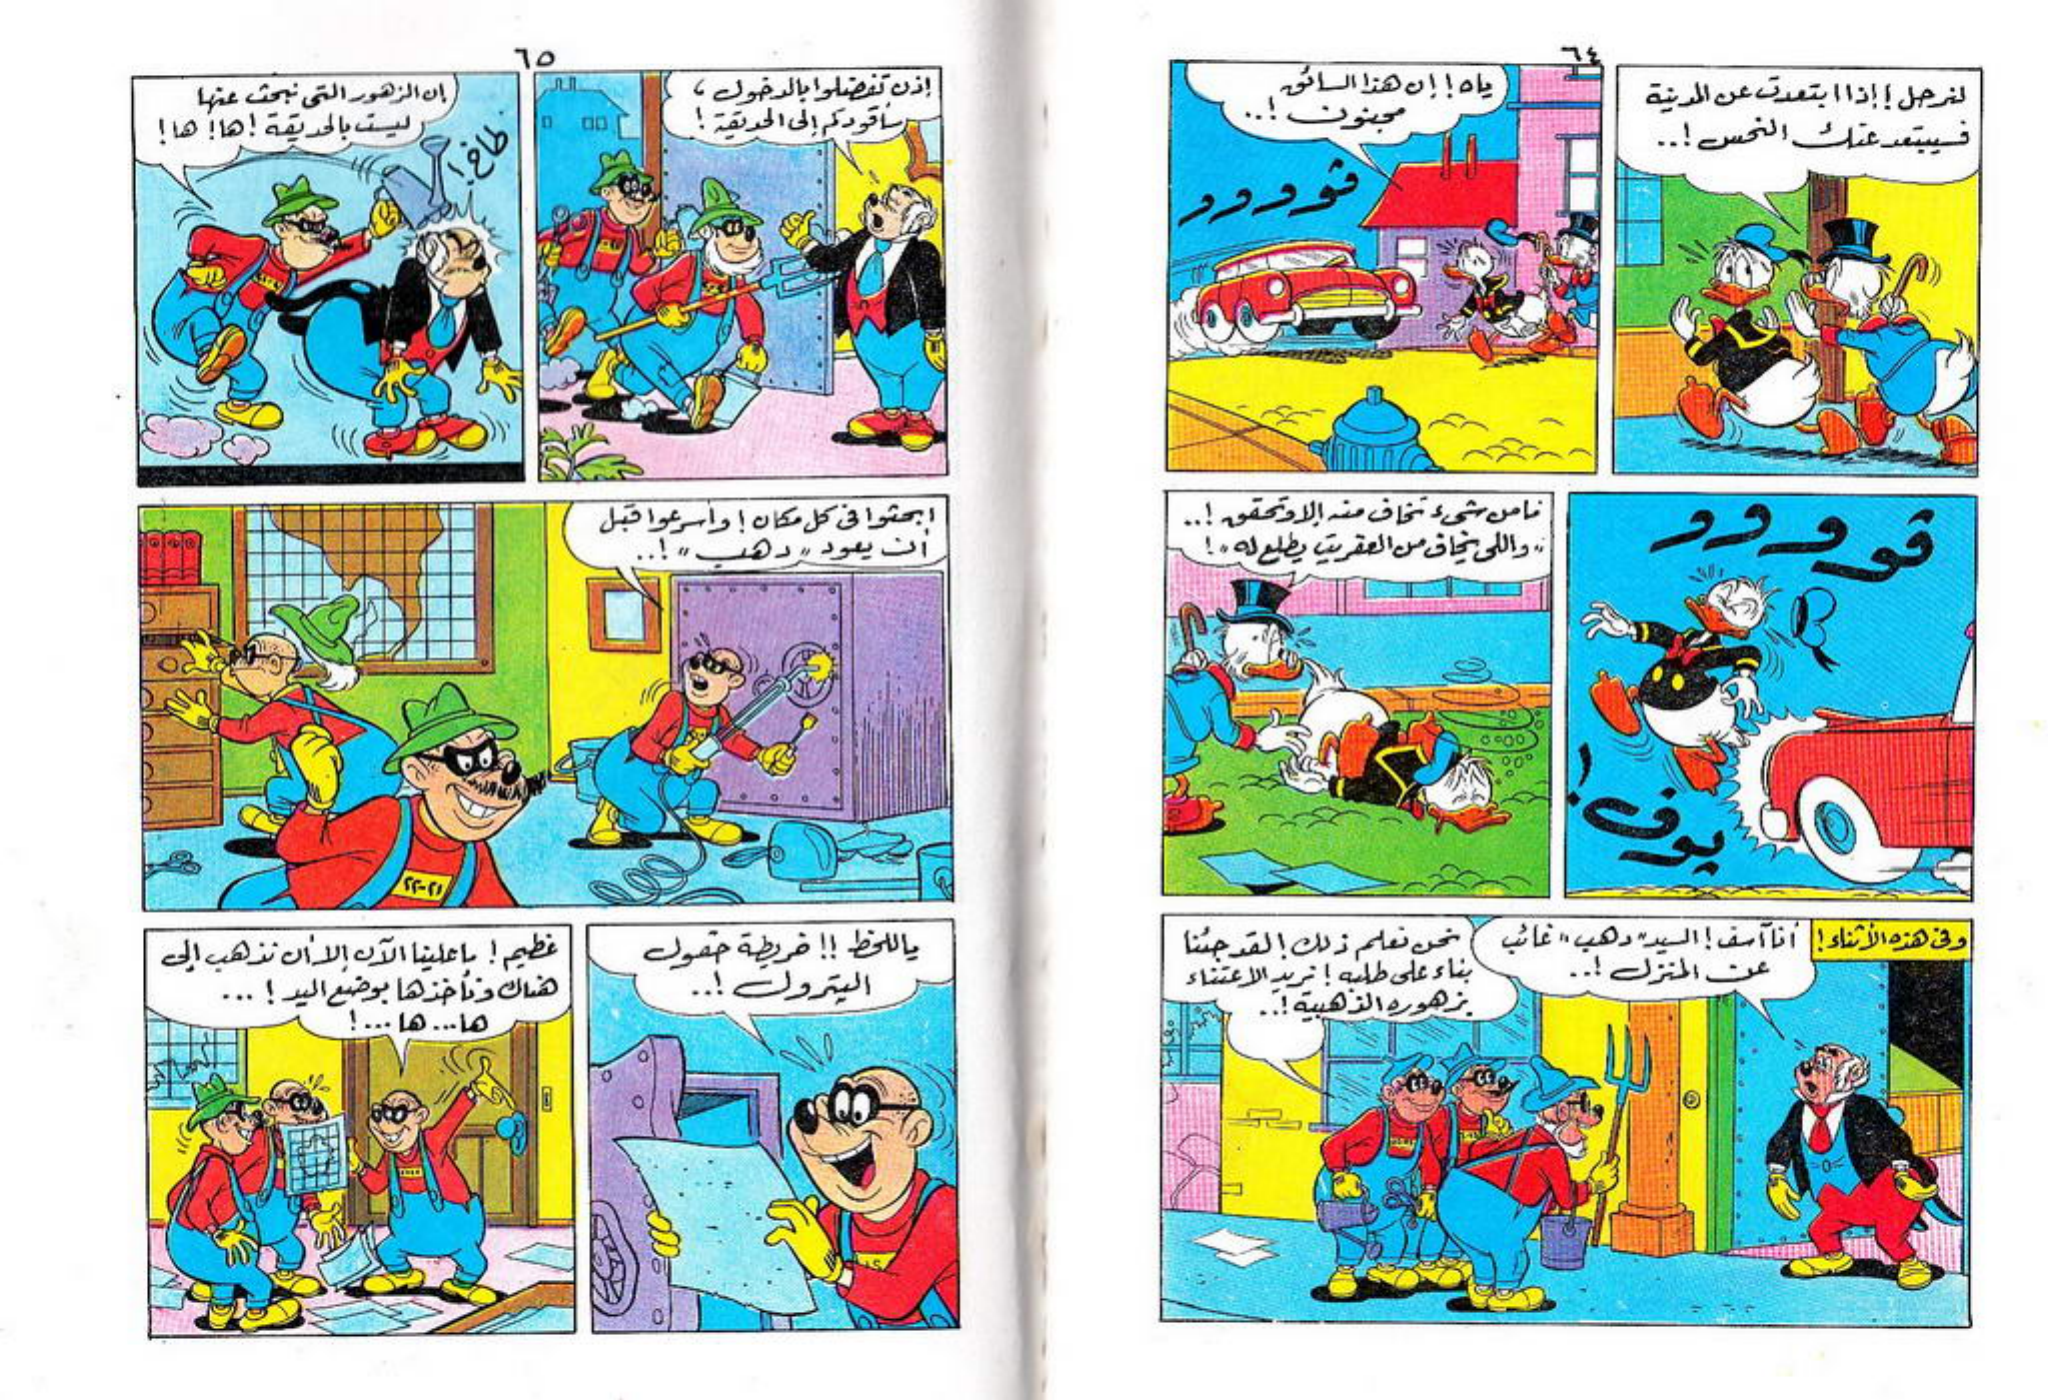 ٦٤
لنرحل ! إذا ابتعدت عن المدينة
فسيبتعد عنك النحس !..
ياه ! إن هذا السائق
مجنون !..
ڤوووو
ڤوووو
بوف !
فما من شىء تخاف منه إلا وتحقق !..
" واللى يخاف من العفريت يطلع له " !
وفى هذه الأثناء !
أنا آسف ! السيد " دهب " غائب
عن المنزل !..
نحن نعلم ذلك ! لقد جئنا
بناء على طلبه ! نريد الاعتناء
بزهوره الذهبية !..
٦٥
إذن تفضلوا بالدخول ،
سأقودكم إلى الحديقة !
إن الزهور التى نبحث عنها
ليست بالحديقة ! ها ! ها !
طاخ !
ابحثوا فى كل مكان ! وأسرعوا قبل
أن يعود " دهب " !..
٢١-٢٢
ياللحظ !! خريطة حقول
البترول !..
عظيم ! ما علينا الآن إلا أن نذهب إلى
هناك ونأخذها بوضع اليد ! ...
ها... ها...!